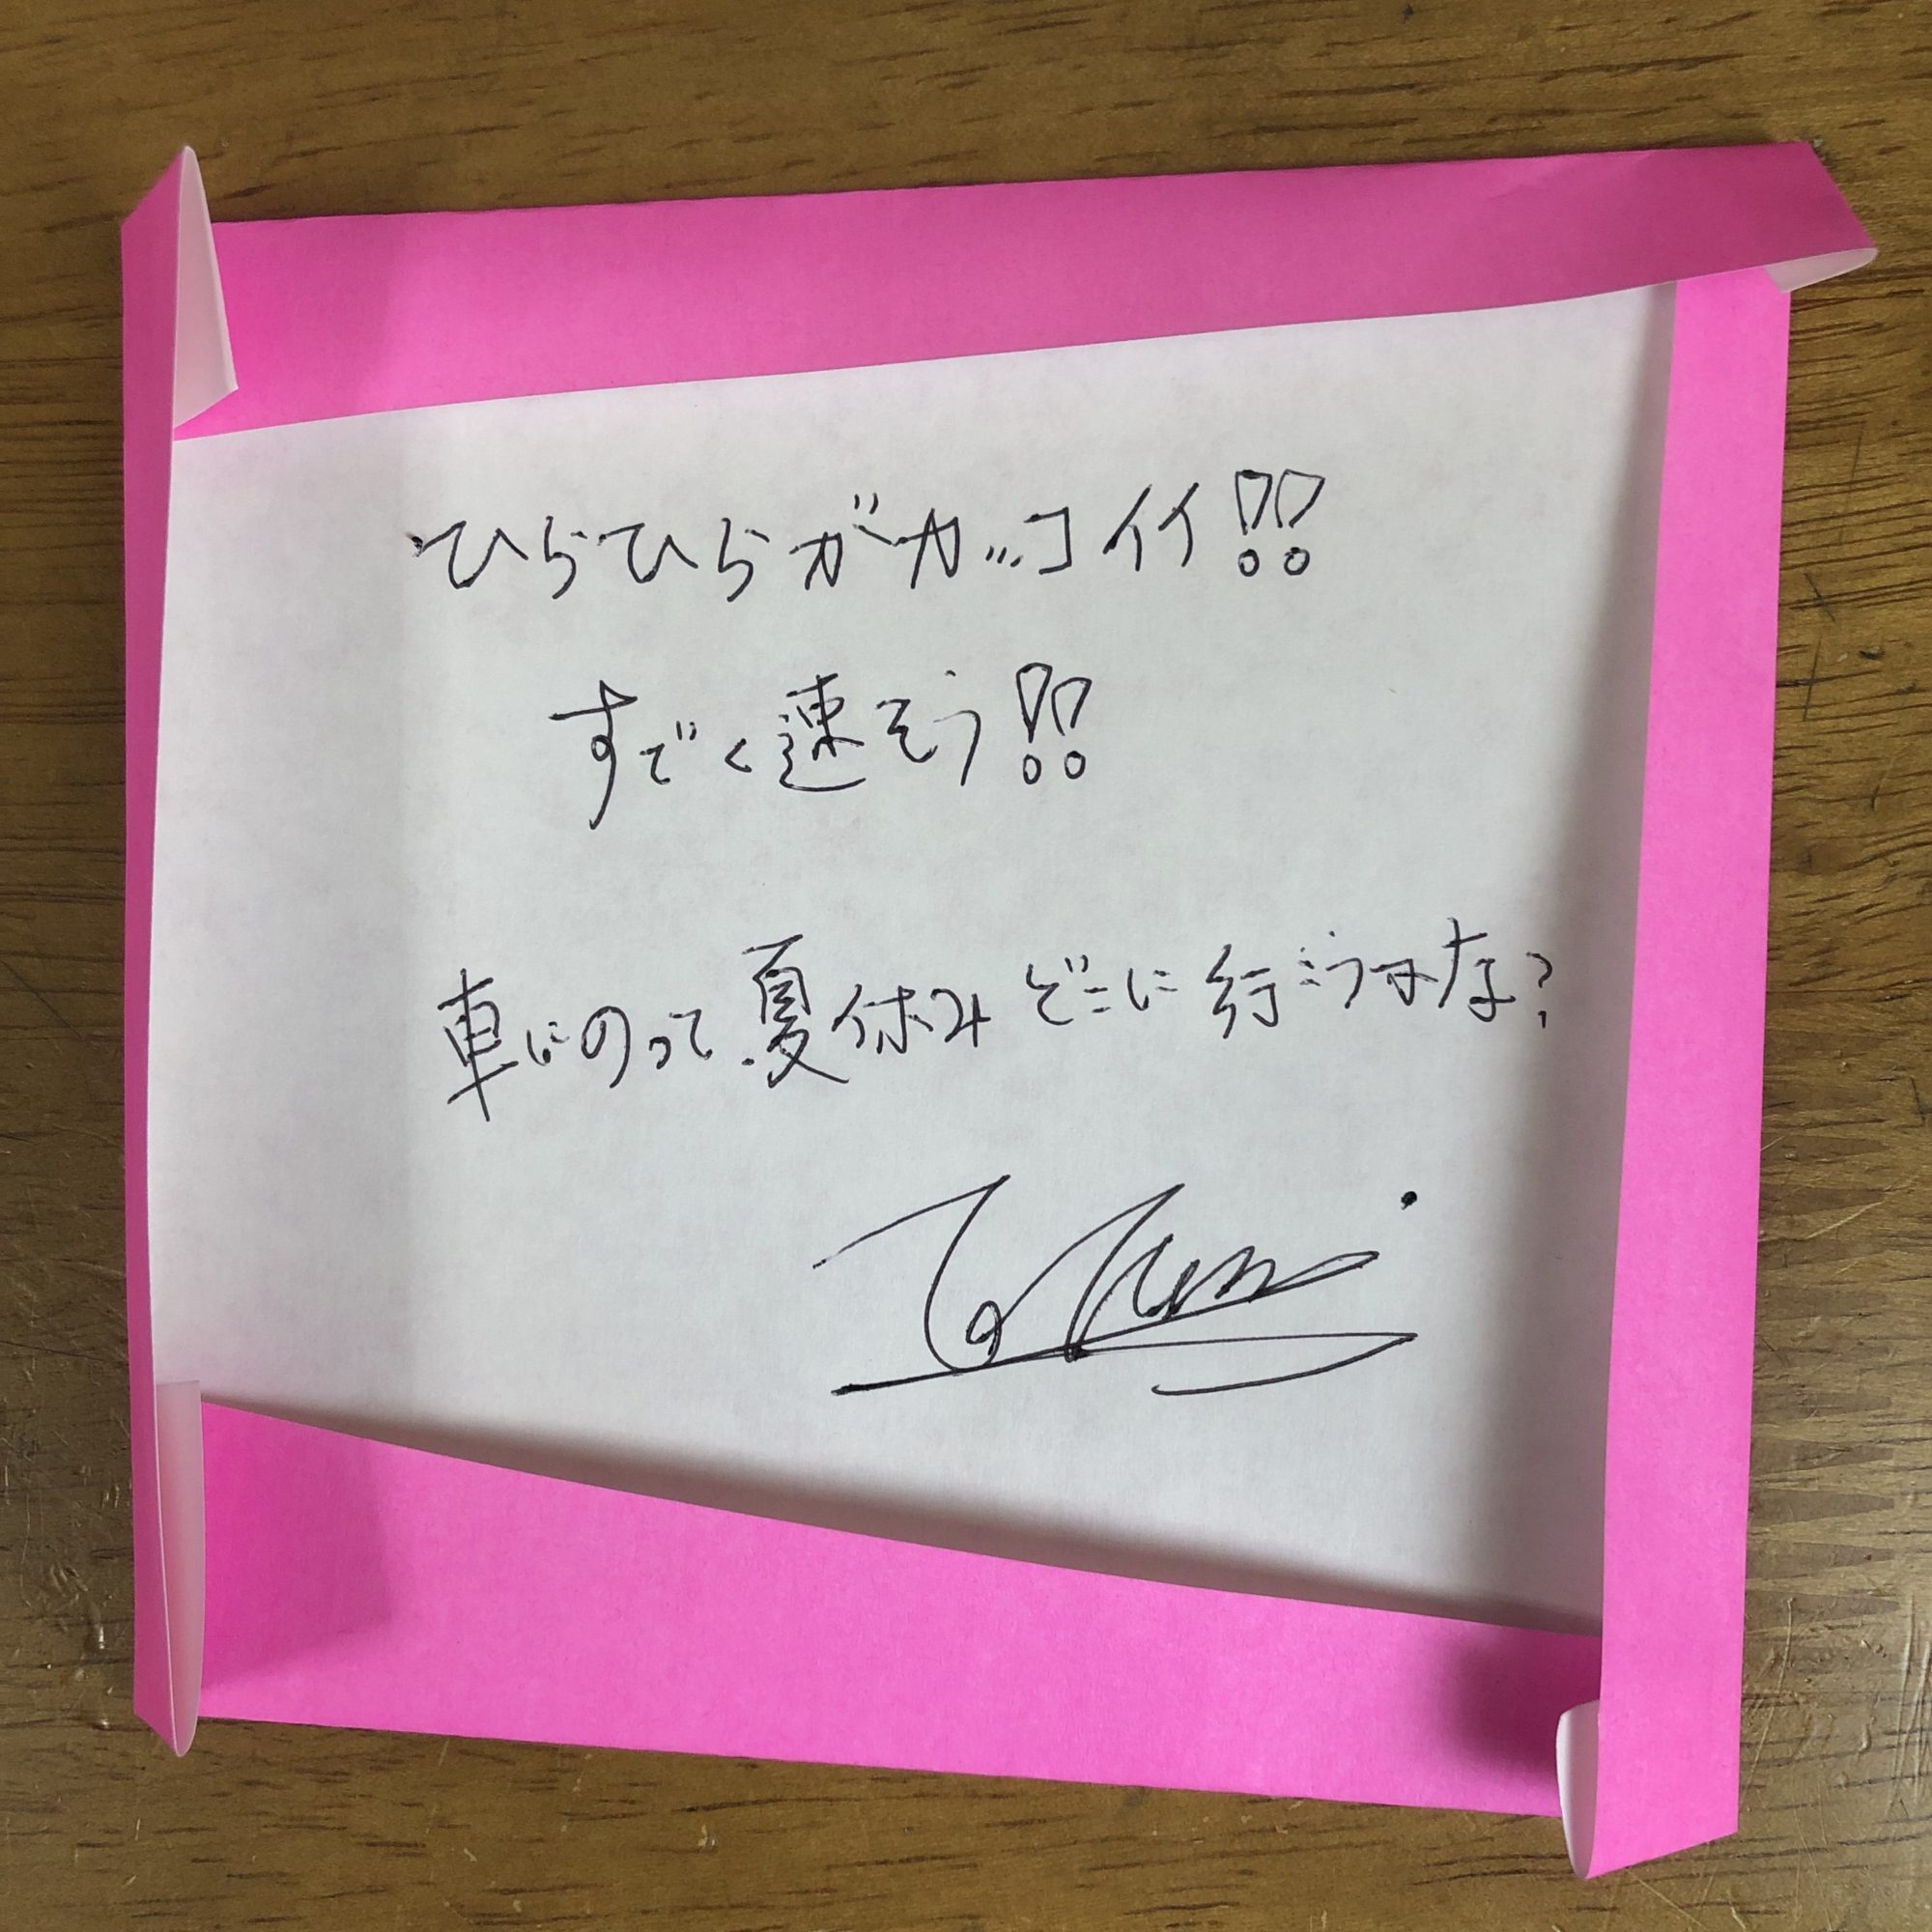 ひらひらがカッコイイ!!
すごく速そう!!
車にのって夏休みどこに行こうかな?